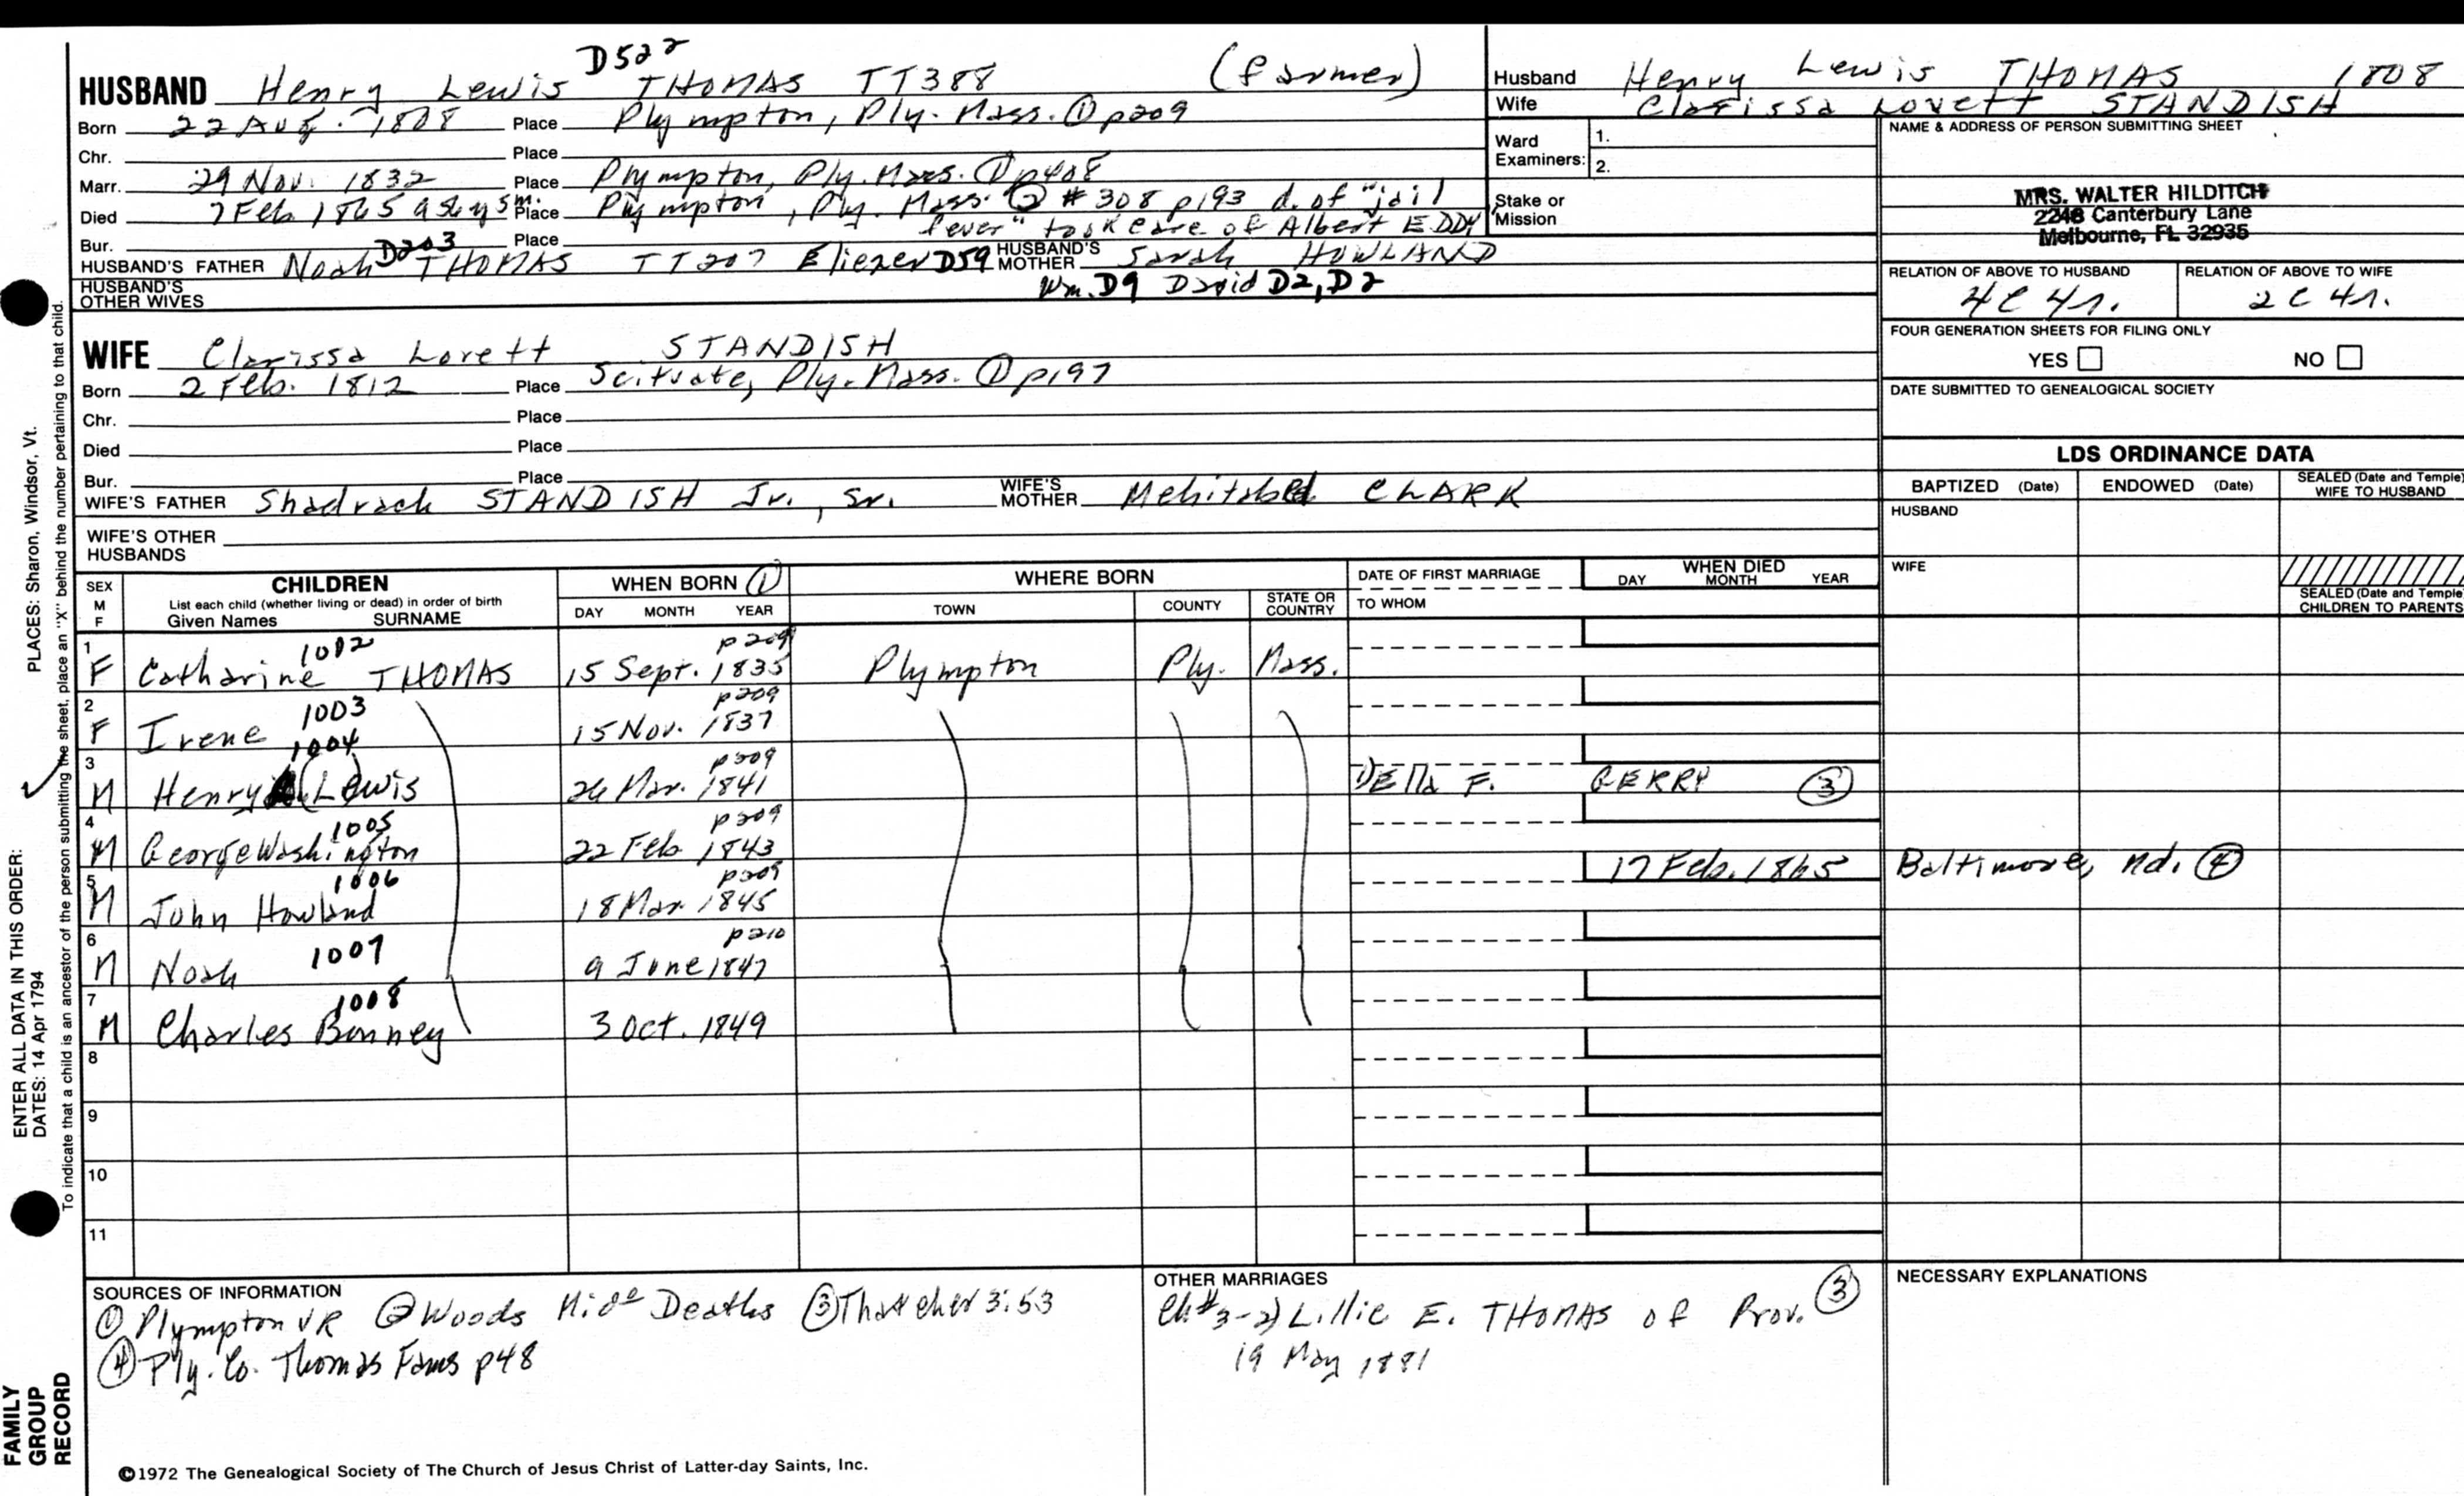 HUSBAND Henry Lewis D522 THOMAS TT388 (farmer)
Born 22 Aug. 1808 Place Plympton, Ply. Mass. ① p209
Chr. Place
Marr. 29 Nov. 1832 Place Plympton, Ply. Mass. ① p408
Died 7 Feb 1865 a 56y 5m. Place Plympton, Ply. Mass. ② # 308 p193 d. of "jail
fever" took care of Albert EDDY
Bur. Place
HUSBAND'S FATHER Noah D203 THOMAS TT207 Eliezer D59 HUSBAND'S MOTHER Sarah HOWLAND
HUSBAND'S OTHER WIVES Wm. D9 David D2, D2
WIFE Clarissa Lovett STANDISH
Born 2 Feb. 1812 Place Scituate, Ply. Mass. ① p197
Chr. Place
Died Place
Bur. Place
WIFE'S FATHER Shadrach STANDISH Jr., Sr. WIFE'S MOTHER Mehitabel CLARK
WIFE'S OTHER HUSBANDS
Husband Henry Lewis THOMAS 1808
Wife Clarissa Lovett STANDISH
Ward Examiners: 1.
2.
Stake or Mission
NAME & ADDRESS OF PERSON SUBMITTING SHEET
MRS. WALTER HILDITCH
2248 Canterbury Lane
Melbourne, FL 32935
RELATION OF ABOVE TO HUSBAND RELATION OF ABOVE TO WIFE
4C 4r. 2C 4r.
FOUR GENERATION SHEETS FOR FILING ONLY
YES NO
DATE SUBMITTED TO GENEALOGICAL SOCIETY
LDS ORDINANCE DATA
BAPTIZED (Date) ENDOWED (Date) SEALED (Date and Temple) WIFE TO HUSBAND
HUSBAND
WIFE
SEALED (Date and Temple) CHILDREN TO PARENTS
SEX M F CHILDREN WHEN BORN ① WHERE BORN DATE OF FIRST MARRIAGE WHEN DIED
List each child (whether living or dead) in order of birth
Given Names SURNAME DAY MONTH YEAR TOWN COUNTY STATE OR COUNTRY TO WHOM DAY MONTH YEAR
1 1002 p209
F Catharine THOMAS 15 Sept. 1835 Plympton Ply. Mass.
2 1003 p209
F Irene 15 Nov. 1837
3 1004 p209
M Henry (Lewis 26 Mar. 1841 Della F. GERRY ③
4 1005 p209
M George Washington 22 Feb 1843
5 1006 p209 17 Feb. 1865 Baltimore, Md. ④
M John Howland 18 Mar 1845
6 1007 p210
M Noah 9 June 1847
7 1008
M Charles Bonney 3 Oct. 1849
8
9
10
11
SOURCES OF INFORMATION
① Plympton VR ② Woods Midº Deaths ③ Thatcher 3:53
④ Ply. Co. Thomas Fams p48
OTHER MARRIAGES
Ch#3-2) Lillie E. THOMAS of Prov. ③
19 May 1881
NECESSARY EXPLANATIONS
©1972 The Genealogical Society of The Church of Jesus Christ of Latter-day Saints, Inc.
FAMILY GROUP RECORD
ENTER ALL DATA IN THIS ORDER:
DATES: 14 Apr 1794
PLACES: Sharon, Windsor, Vt.
To indicate that a child is an ancestor of the person submitting the sheet, place an "X" behind the number pertaining to that child.